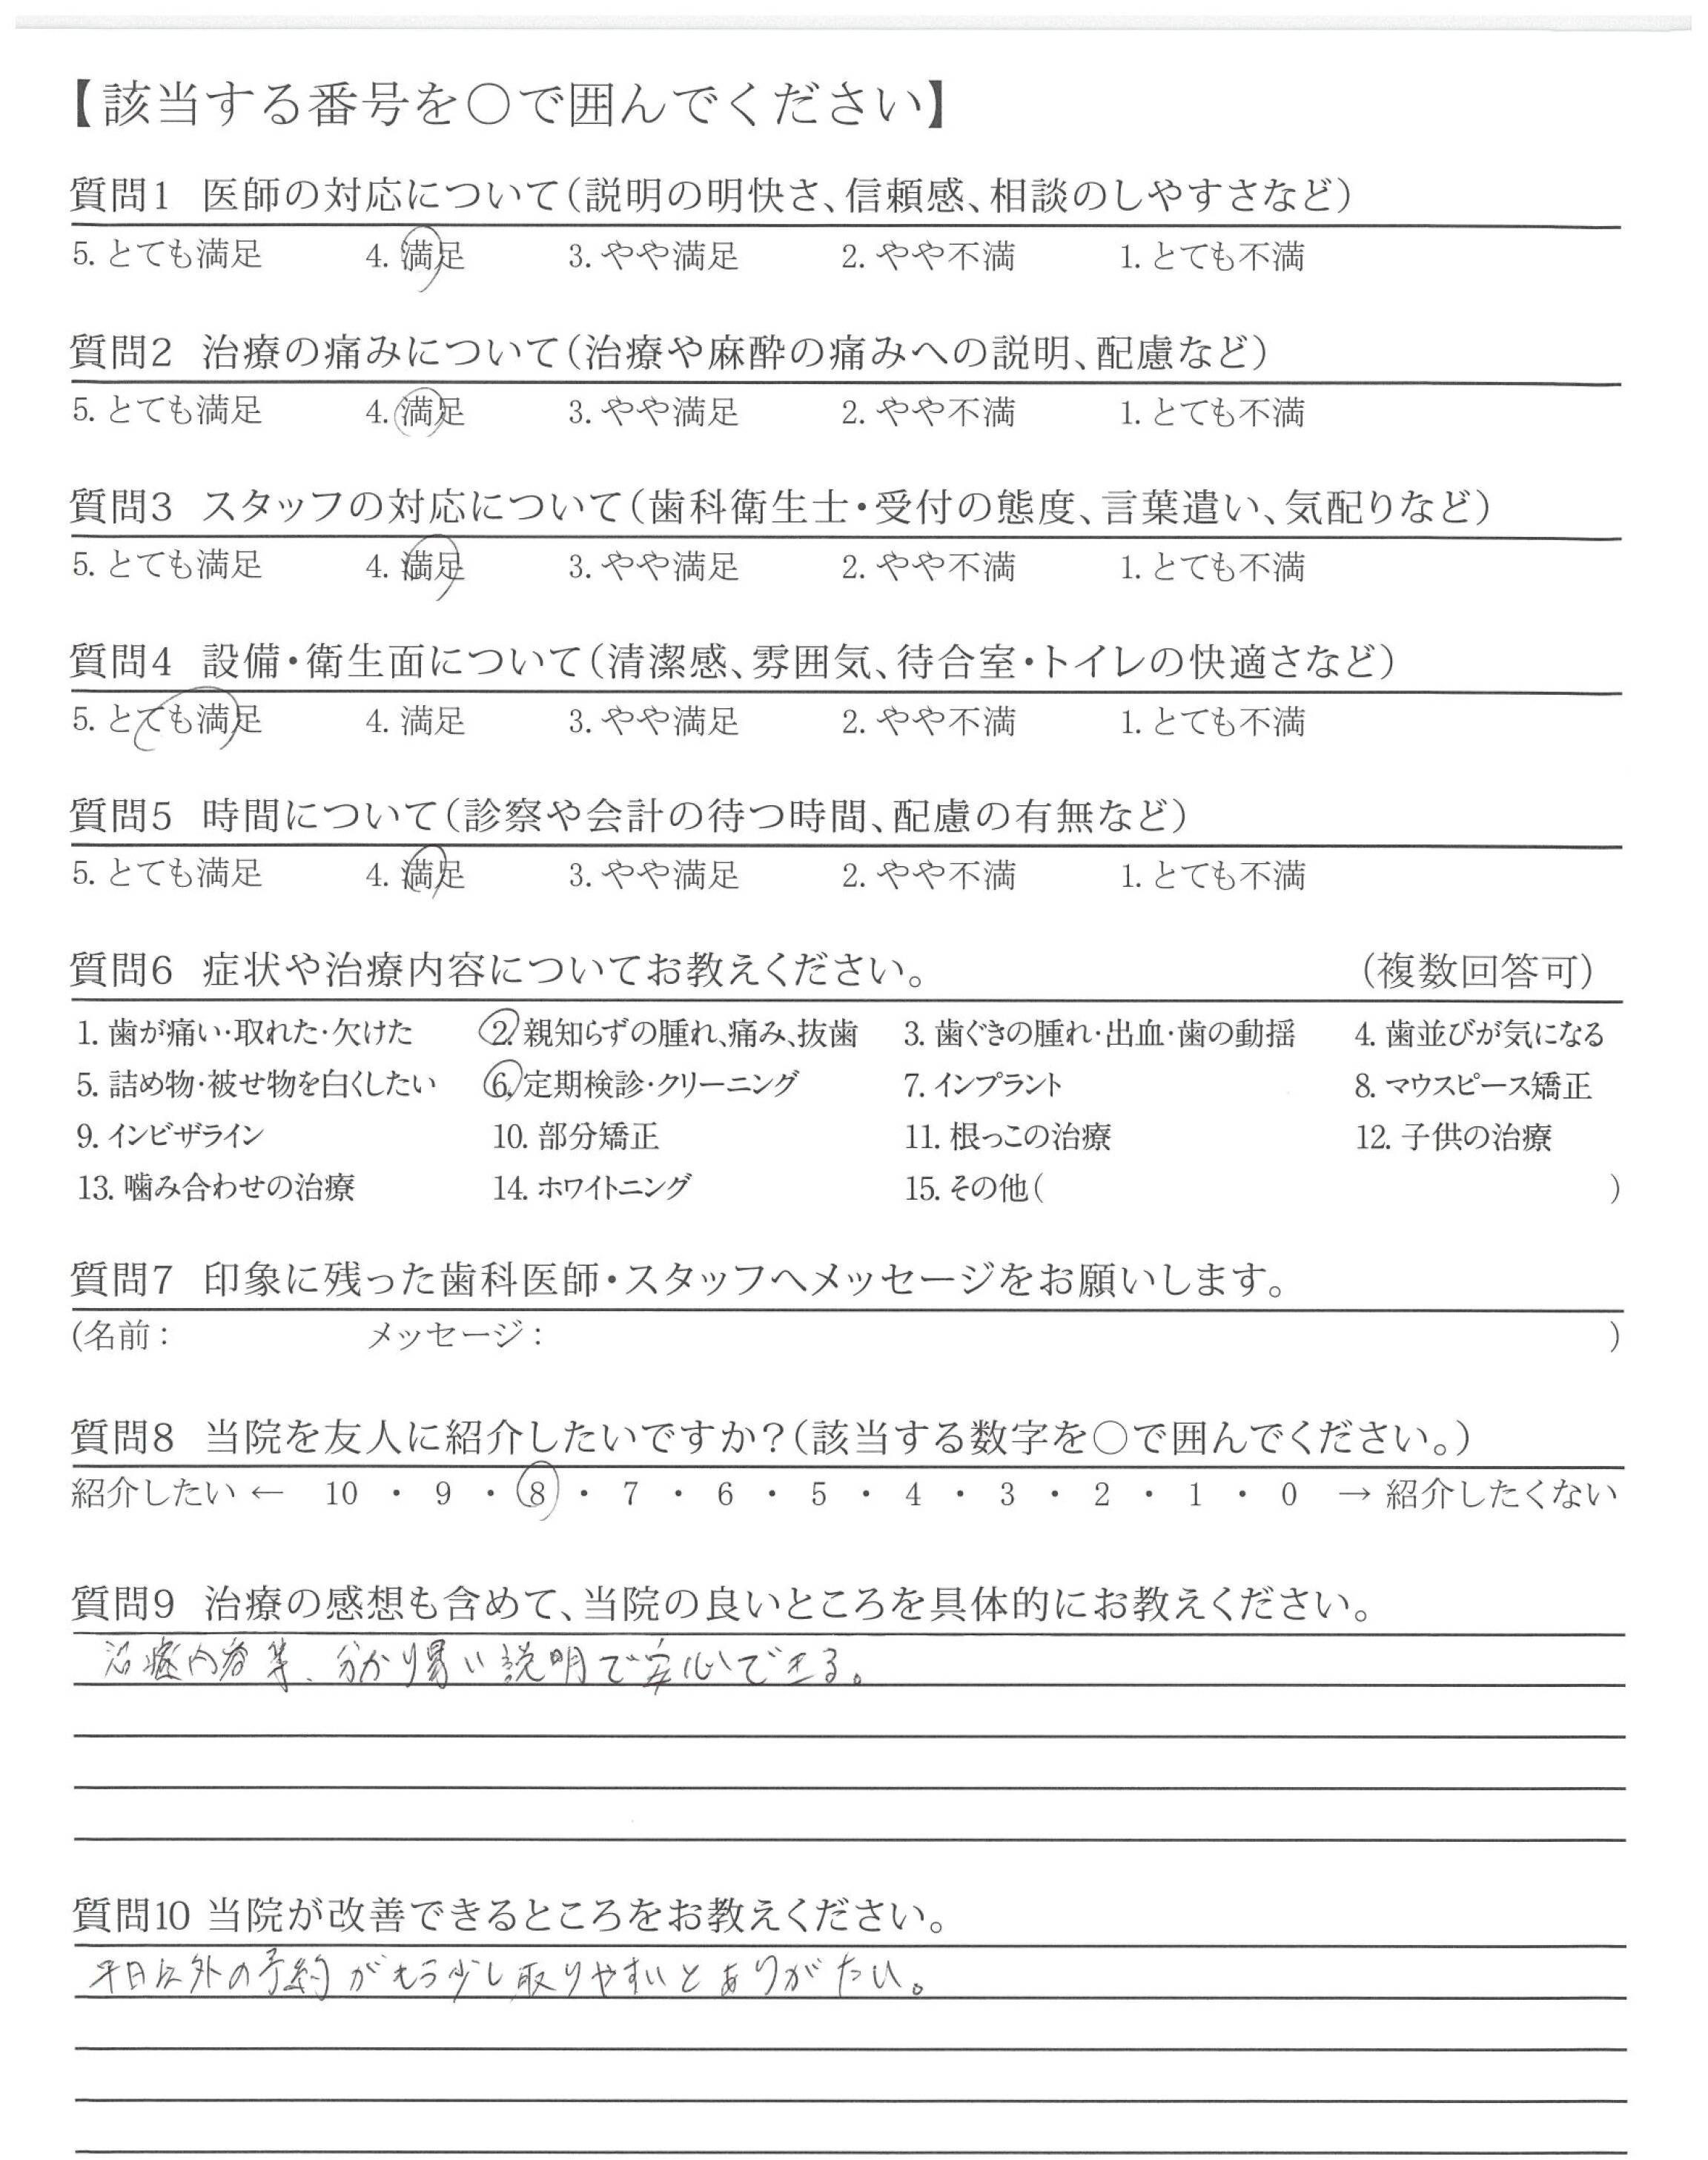 【該当する番号を○で囲んでください】
質問1 医師の対応について(説明の明快さ、信頼感、相談のしやすさなど)
5. とても満足 4. 満足 3. やや満足 2. やや不満 1. とても不満
質問2 治療の痛みについて(治療や麻酔の痛みへの説明、配慮など)
5. とても満足 4. 満足 3. やや満足 2. やや不満 1. とても不満
質問3 スタッフの対応について(歯科衛生士・受付の態度、言葉遣い、気配りなど)
5. とても満足 4. 満足 3. やや満足 2. やや不満 1. とても不満
質問4 設備・衛生面について(清潔感、雰囲気、待合室・トイレの快適さなど)
5. とても満足 4. 満足 3. やや満足 2. やや不満 1. とても不満
質問5 時間について(診察や会計の待つ時間、配慮の有無など)
5. とても満足 4. 満足 3. やや満足 2. やや不満 1. とても不満
質問6 症状や治療内容についてお教えください。 (複数回答可)
1. 歯が痛い・取れた・欠けた 2. 親知らずの腫れ、痛み、抜歯 3. 歯ぐきの腫れ・出血・歯の動揺 4. 歯並びが気になる
5. 詰め物・被せ物を白くしたい 6. 定期検診・クリーニング 7. インプラント 8. マウスピース矯正
9. インビザライン 10. 部分矯正 11. 根っこの治療 12. 子供の治療
13. 噛み合わせの治療 14. ホワイトニング 15. その他( )
質問7 印象に残った歯科医師・スタッフへメッセージをお願いします。
(名前: メッセージ: )
質問8 当院を友人に紹介したいですか?(該当する数字を○で囲んでください。)
紹介したい ← 10 ・ 9 ・ 8 ・ 7 ・ 6 ・ 5 ・ 4 ・ 3 ・ 2 ・ 1 ・ 0 → 紹介したくない
質問9 治療の感想も含めて、当院の良いところを具体的にお教えください。
治療内容等、分かり易い説明で安心できる。
質問10 当院が改善できるところをお教えください。
平日以外の予約がもう少し取りやすいとありがたい。